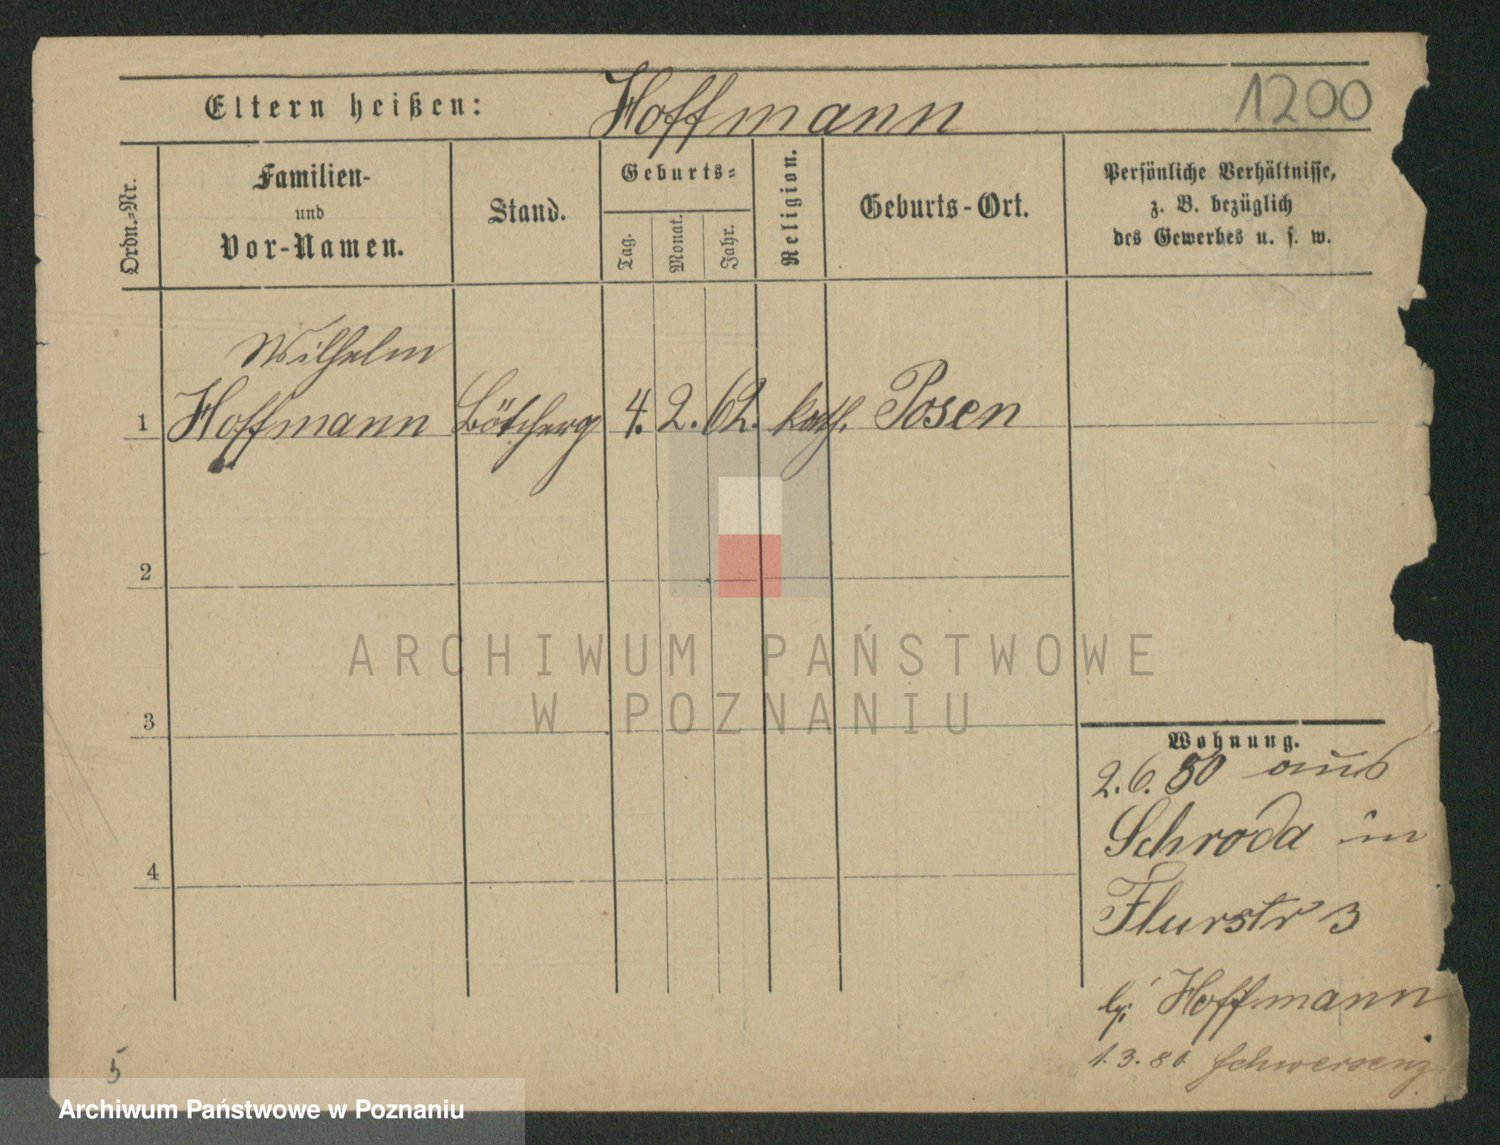 Eltern heißen: Hoffmann 1200
Ordn.-Nr.
Familien-
und
Vor-Namen.
Stand.
Geburts-
Tag.
Monat.
Jahr.
Religion.
Geburts-Ort.
Persönliche Verhältnisse,
z. B. bezüglich
des Gewerbes u. s. w.
Wilhelm
1 Hoffmann Bötcherg 4. 2. 62. kath. Posen
2
3
4
ARCHIWUM PAŃSTWOWE
W POZNANIU
Wohnung.
2.6.80 aus
Schroda in
Flurstr 3
bei Hoffmann
1.3.81 Schwersenz
5
Archiwum Państwowe w Poznaniu